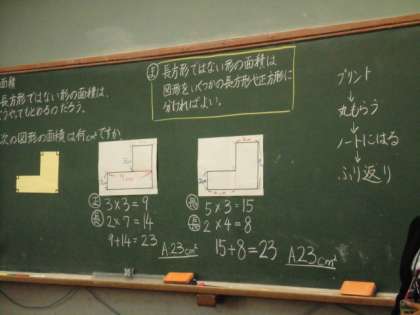 面積
長方形ではない形の面積は、
うやってもとめるのだろう。
次の図形の面積は何cm²ですか
ま 長方形ではない形の面積は
図形をいくつかの長方形や正方形に
分ければよい。
正 3×3=9
長 2×7=14
9+14=23
A.23cm²
長 5×3=15
長 2×4=8
15+8=23 A23cm²
プリント
↓
丸もらう
↓
ノートにはる
↓
ふり返り